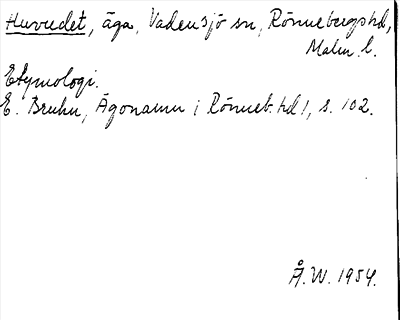 Huvudet, äga, Vadensjö sn, Rönnebergs hd,
Malm. l.
Etymologi.
E. Bruhn, Ägonamn i Rönneb. hd 1, s. 102.
Å. W. 1954.